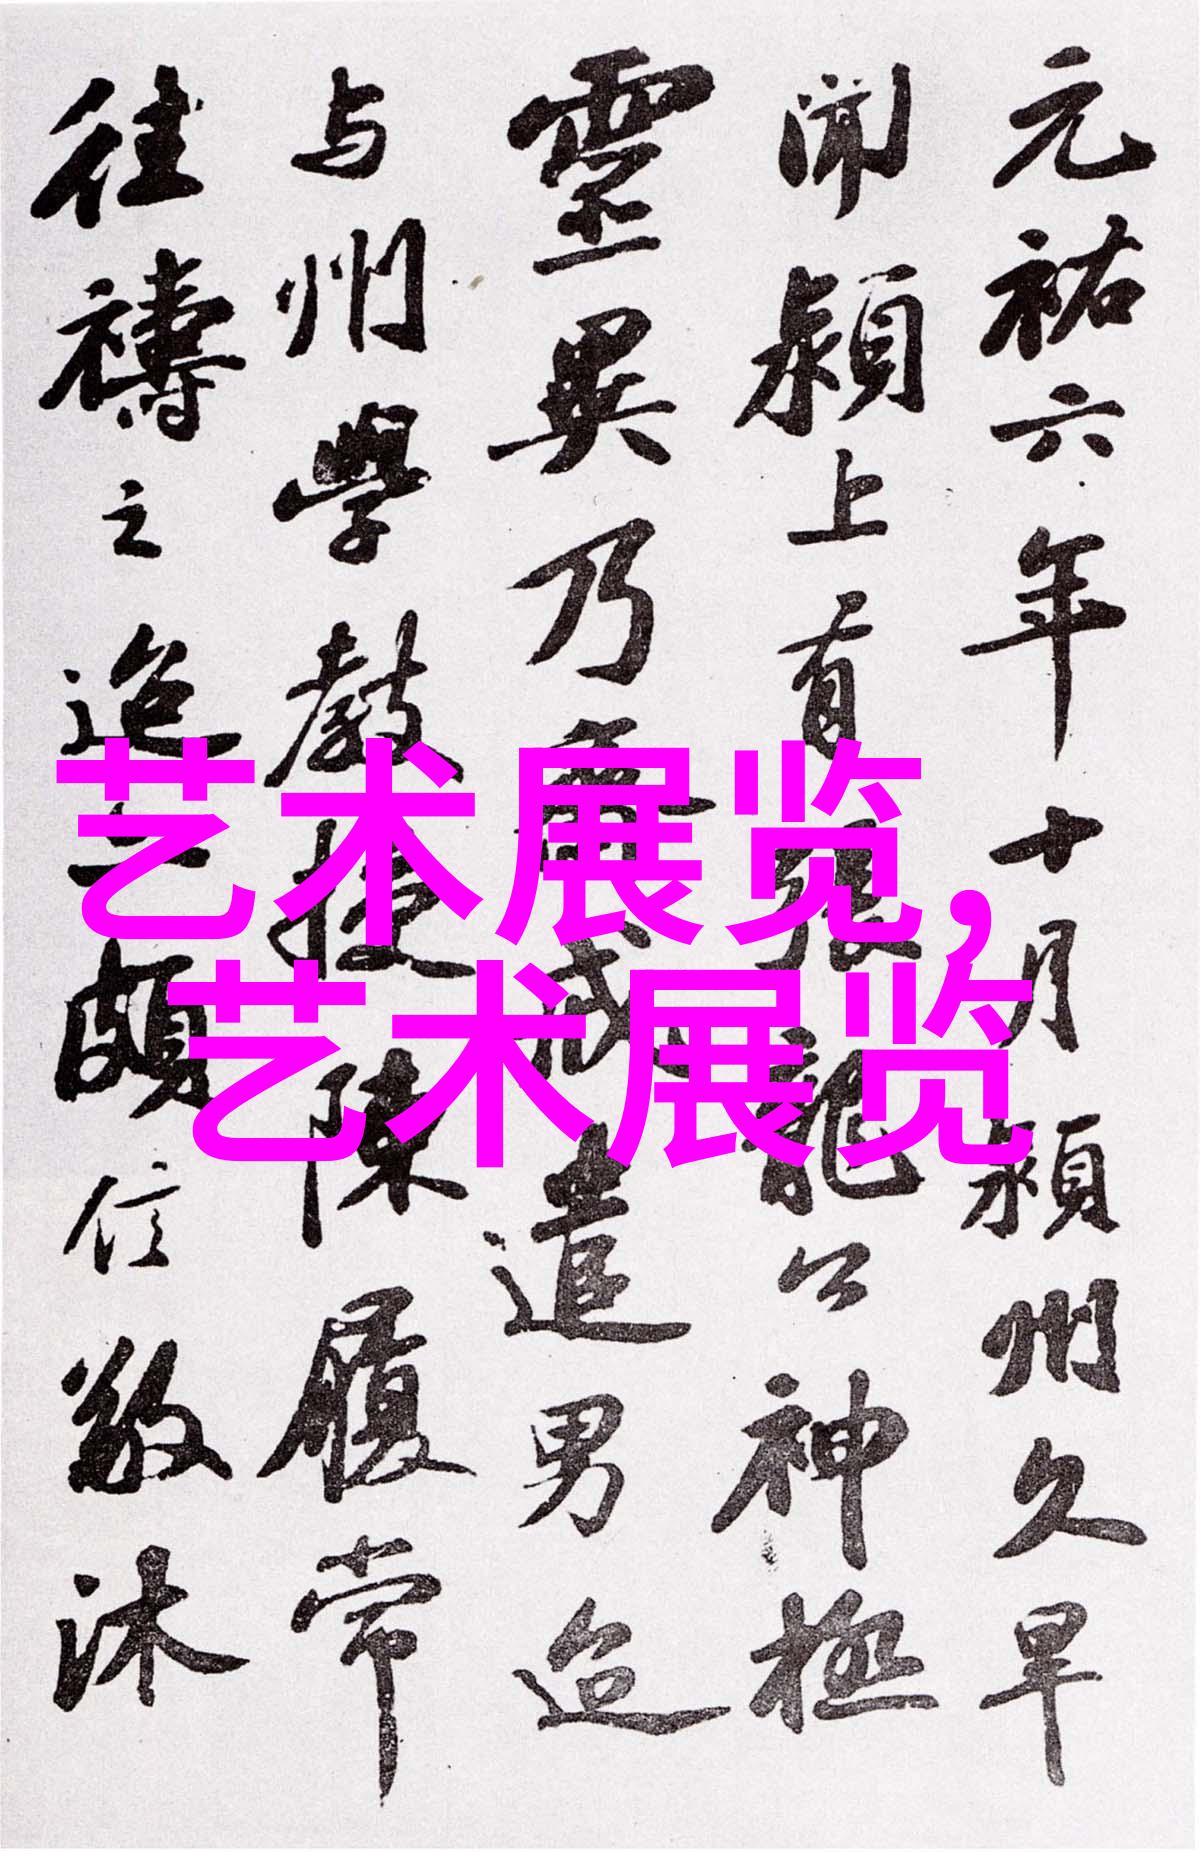 元祐六年十月潁州久旱
聞潁上有張龍公神極
靈異乃齋戒遣男迨
与州學教授陳履常
往禱之迨亦頗信敬沐
艺术展览，
艺术展览